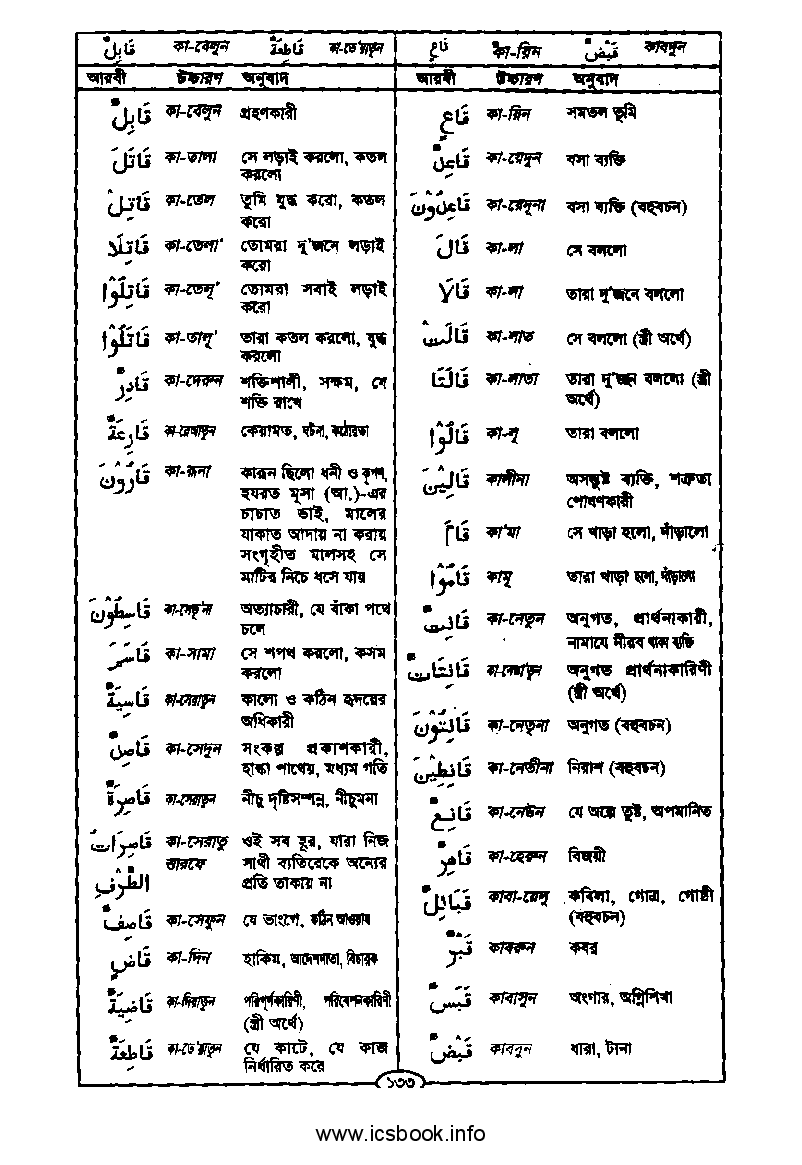 قَابِلٌ কা-বেলুন قَاطِعَةٌ কা-তে'য়াতুন
আরবী উচ্চারণ অনুবাদ
قَابِلٌ কা-বেলুন গ্রহণকারী
قَاتَلَ কা-তালা সে লড়াই করলো, কতল
করলো
قَاتِلْ কা-তেল তুমি যুদ্ধ করো, কতল
করো
قَاتِلَا কা-তেলা' তোমরা দু'জনে লড়াই
করো
قَاتِلُوْا কা-তেলূ' তোমরা সবাই লড়াই
করো
قَاتَلُوْا কা-তালূ' তারা কতল করলো, যুদ্ধ
করলো
قَادِرٌ কা-দেরুন শক্তিশালী, সক্ষম, যে
শক্তি রাখে
قَارِعَةٌ কা-রেয়াতুন কেয়ামত, ঘটনা, কঠোরতা
قَارُوْنَ কা-রূনা কারূন ছিলো ধনী ও কৃপণ,
হযরত মূসা (আ.)-এর
চাচাত ভাই, মালের
যাকাত আদায় না করায়
সংগৃহীত মালসহ সে
মাটির নিচে ধসে যায়
قَاسِطُوْنَ কা-সেতূ'না অত্যাচারী, যে বাঁকা পথে
চলে
قَاسَمَ কা-সামা সে শপথ করলো, কসম
করলো
قَاسِيَةٌ কা-সেয়াতুন কালো ও কঠিন হৃদয়ের
অধিকারী
قَاصِدٌ কা-সেদুন সংকল্প প্রকাশকারী,
হাল্কা পাথেয়, মধ্যম গতি
قَاصِرَةٌ কা-সেরাতুন নীচু দৃষ্টিসম্পন্ন, নীচুমনা
قَاصِرَاتُ কা-সেরাতু ওই সব হুর, যারা নিজ
الطَّرْفِ ত্তারফে সাথী ব্যতিরেকে অন্যের
প্রতি তাকায় না
قَاصِفٌ কা-সেফুন যে ভাংগে, কঠিন আওয়ায
قَاضٍ কা-দিন হাকিম, আদেশদাতা, বিচারক
قَاضِيَةٌ কা-দিয়াতুন পরিপূর্ণকারিণী, পরিবেশনকারিণী
(স্ত্রী অর্থে)
قَاطِعَةٌ কা-তে'য়াতুন যে কাটে, যে কাজ
নির্ধারিত করে
قَاعٍ কা-য়িন قَبْضٌ কাবদুন
আরবী উচ্চারণ অনুবাদ
قَاعٍ কা-য়িন সমতল ভূমি
قَاعِدٌ কা-য়েদুন বসা ব্যক্তি
قَاعِدُوْنَ কা-য়েদূনা বসা ব্যক্তি (বহুবচন)
قَالَ কা-লা সে বললো
قَالَا কা-লা তারা দু'জনে বললো
قَالَتْ কা-লাত সে বললো (স্ত্রী অর্থে)
قَالَتَا কা-লাতা তারা দু'জন বললো (স্ত্রী
অর্থে)
قَالُوْا কা-লূ তারা বললো
قَالِيْنَ কালীনা অসন্তুষ্ট ব্যক্তি, শত্রুতা
পোষণকারী
قَامَ কা'মা সে খাড়া হলো, দাঁড়ালো
قَامُوْا কামূ তারা খাড়া হলো, দাঁড়ালো
قَانِتٌ কা-নেতুন অনুগত, প্রার্থনাকারী,
নামাযে নীরব থাকা ব্যক্তি
قَانِتَاتٌ কা-নেতা'তুন অনুগত প্রার্থনাকারিণী
(স্ত্রী অর্থে)
قَانِتُوْنَ কা-নেতূনা অনুগত (বহুবচন)
قَانِطِيْنَ কা-নেতীনা নিরাশ (বহুবচন)
قَانِعٌ কা-নেউন যে অল্পে তুষ্ট, অপমানিত
قَاهِرٌ কা-হেরুন বিজয়ী
قَبَائِلُ কাবা-য়েলু কবিলা, গোত্র, গোষ্ঠী
(বহুবচন)
قَبْرٌ কাবরুন কবর
قَبَسٌ কাবাসুন অংগার, অগ্নিশিখা
قَبْضٌ কাবদুন ধারা, টানা
১৩৩
www.icsbook.info